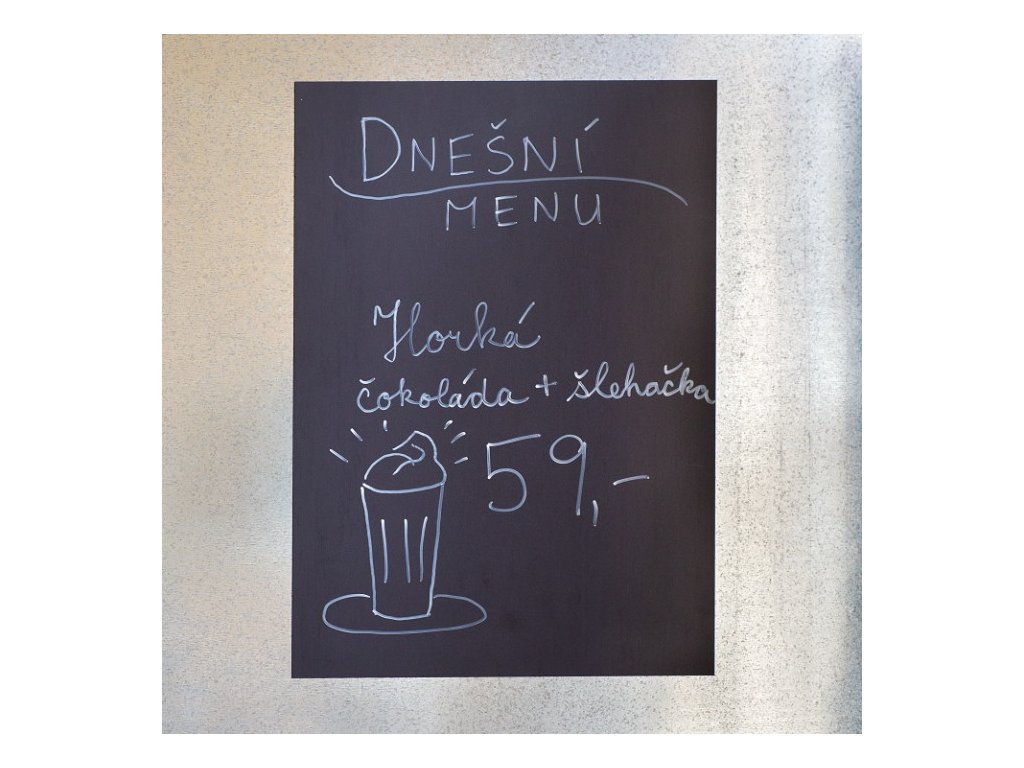 DNEŠNÍ
MENU
Horká
čokoláda + šlehačka
59,-